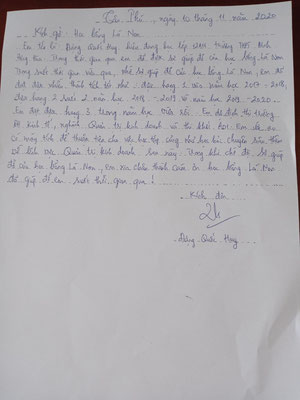 Tân Phú, ngày 10 tháng 11 năm 2020
Kính gửi: Học bổng Lá Non
Em tên là: Đặng Quốc Huy hiện đang học lớp trường THPT
Huy Trong thời gian qua em đã được sự giúp đỡ của học bổng Lá Non
Trong suốt thời gian vừa qua, nhờ sự giúp đỡ của học bổng Lá Non, em đã
đạt được nhiều thành tích tốt như: đạt hạng 1 vào năm học 2017 - 2018,
đạt hạng 2 sau 2 năm học 2018 - 2019 và năm học 2019 - 2020.
Em đạt được hạng 3 trong năm vừa rồi. Em dự định thi trường
ĐH kinh tế, ngành Quản trị kinh doanh và thi khối A01. Em
có máy tính để thuận tiện cho việc học tập cũng như học hỏi chuyên sâu thêm
về lĩnh vực Quản trị kinh doanh sau này. Trong khi chờ đợi sự giúp
đỡ của học bổng Lá Non, em xin chân thành cảm ơn học bổng Lá Non
đã giúp đỡ em suốt thời gian qua!
Kính đơn
Đặng Quốc Huy